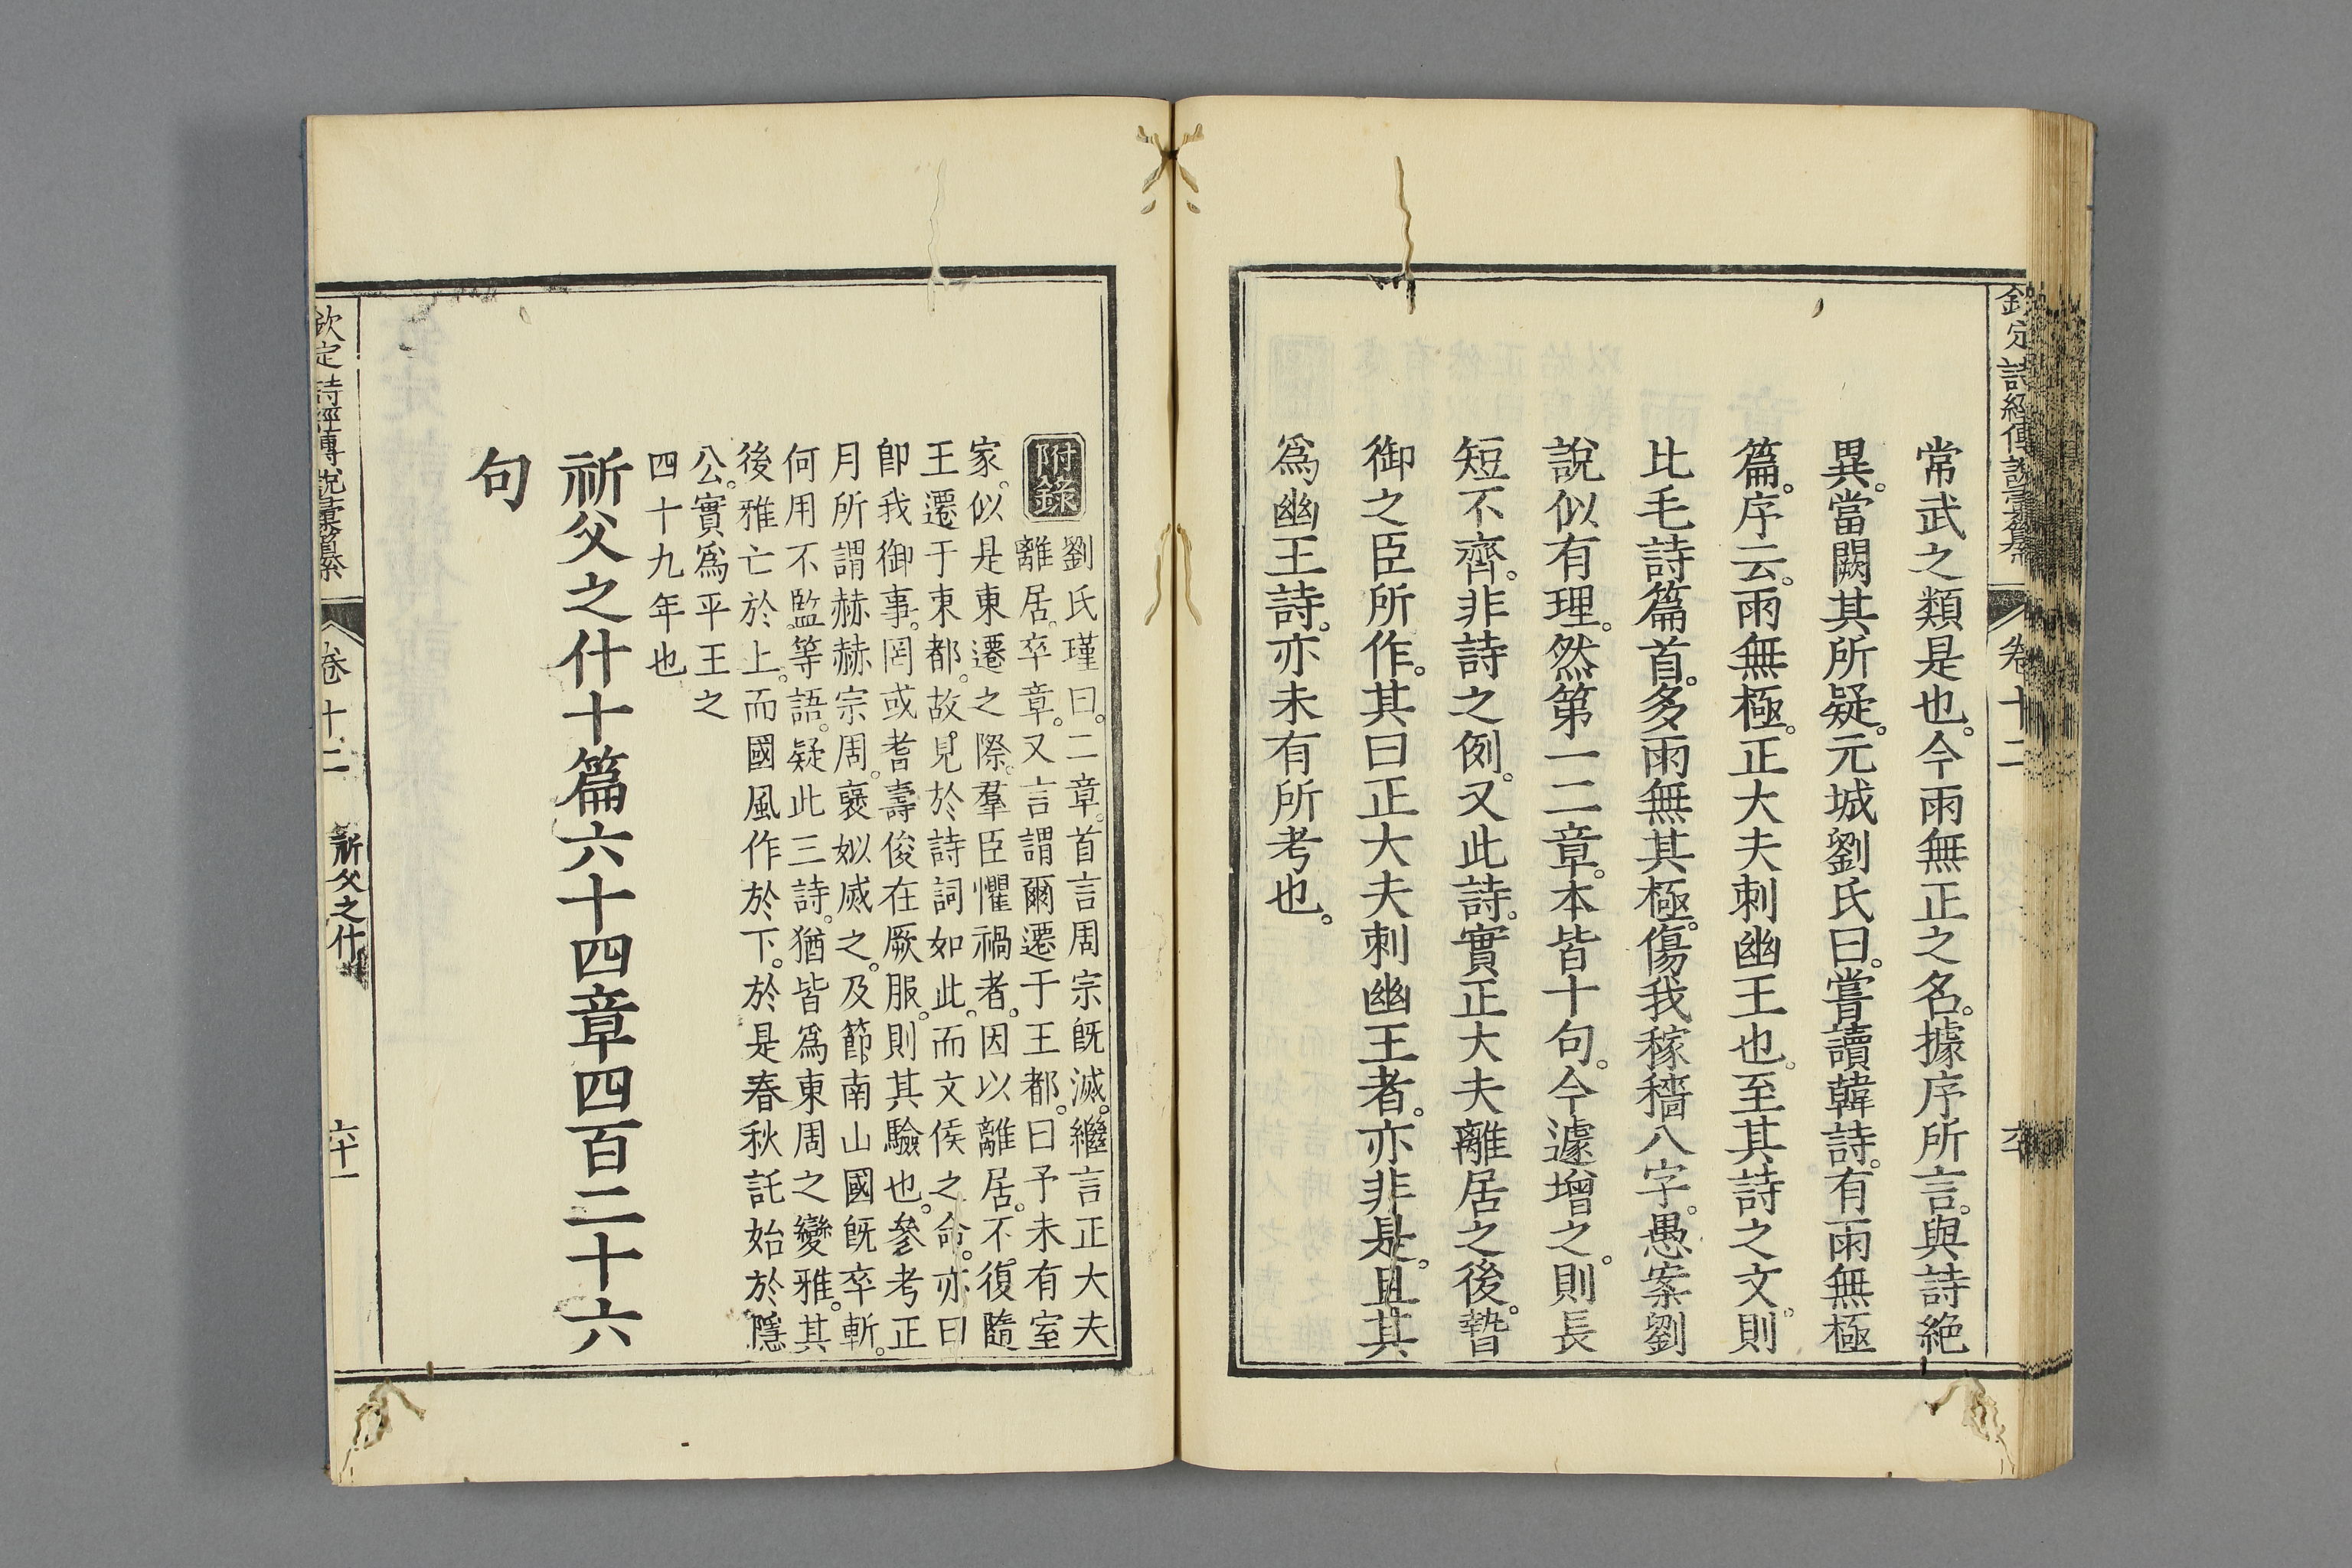 欽定詩經傳說彙纂 卷十二
常武之類是也。今雨無正之名。據序所言。與詩絶
異。當闕其所疑。元城劉氏曰。嘗讀韓詩。有雨無極
篇。序云。雨無極。正大夫刺幽王也。至其詩之文。則
比毛詩篇首。多雨無其極。傷我稼穡八字。愚案劉
說似有理。然第一二章。本皆十句。今遽增之。則長
短不齊。非詩之例。又此詩。實正大夫離居之後。暬
御之臣所作。其曰正大夫刺幽王者。亦非是。且其
爲幽王詩。亦未有所考也。
附錄
劉氏瑾曰。二章。首言周宗旣滅。繼言正大夫
離居。卒章。又言謂爾遷于王都。曰予未有室
家。似是東遷之際。羣臣懼禍者。因以離居。不復隨
王遷于東都。故見於詩詞如此。而文侯之命。亦曰
卽我御事。罔或耆壽俊在厥服。則其驗也。參考正
月所謂赫赫宗周。襃姒烕之。及節南山國旣卒斬。
何用不監。等語。疑此三詩。猶皆爲東周之變雅。其
後雅亡於上。而國風作於下。於是春秋託始於隱
公。實爲平王之
四十九年也
祈父之什十篇六十四章四百二十六
句
欽定詩經傳說彙纂 卷十二 祈父之什 六十一